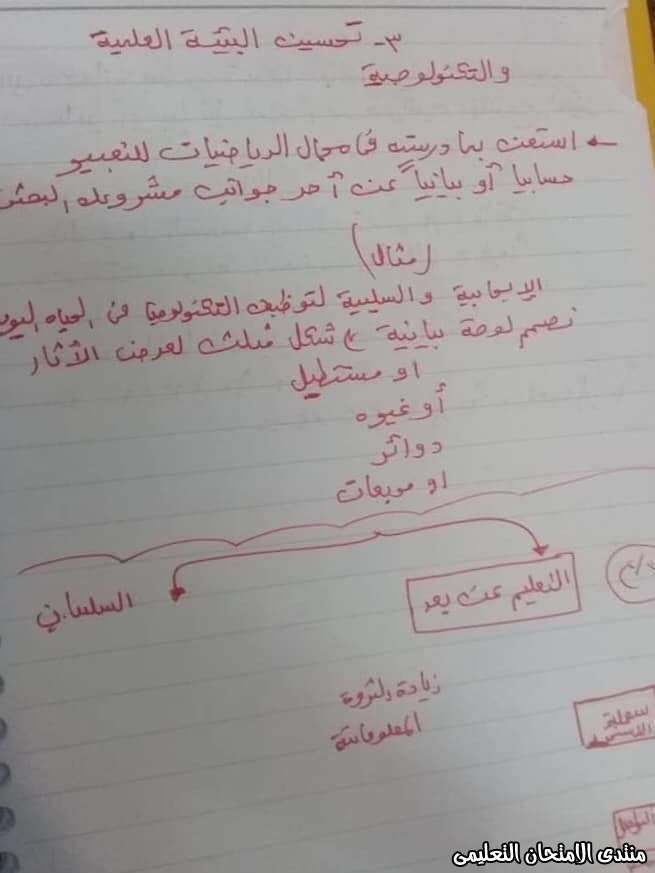 ٣- تحسين البيئة العلمية
والتكنولوجية
← استعن بما درسته في مجال الرياضيات للتعبير
حسابيا أو بيانياً عن أحد جوانب مشروعك البحثى
(مثال)
الإيجابية والسلبية لتوظيف التكنولوجيا في الحياه اليوم
نصمم لوحة بيانية شكل مثلث لعرض الآثار
او مستطيل
أو غيره
دوائر
او مربعات
التعليم عن بعد
السلبيات
زيادة الثروة
المعلوماتية
سهلة
منتدى الامتحان التعليمى